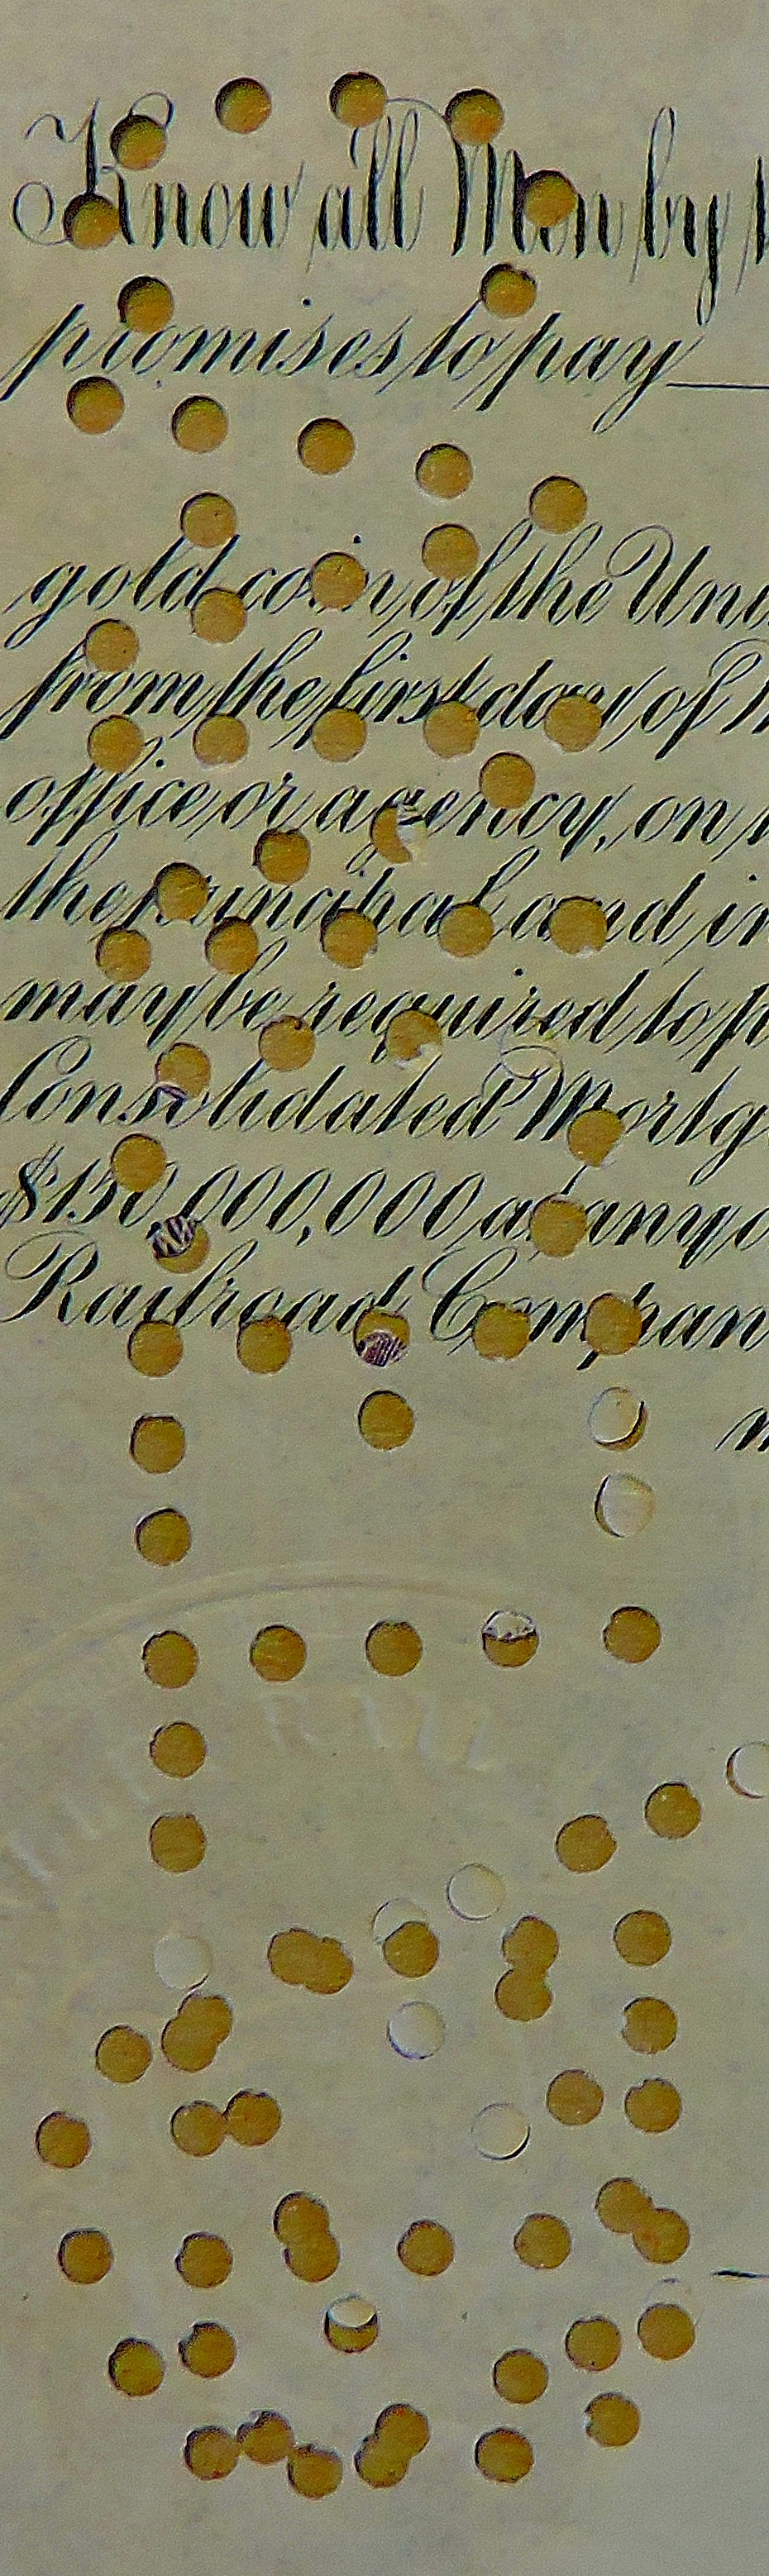 Know all Men by
promises to pay
gold coin of the Uni
from the first day of
office or agency, on
the principal and in
may be required to p
Consolidated Mortg
$150,000,000 as any o
Railroad Compan